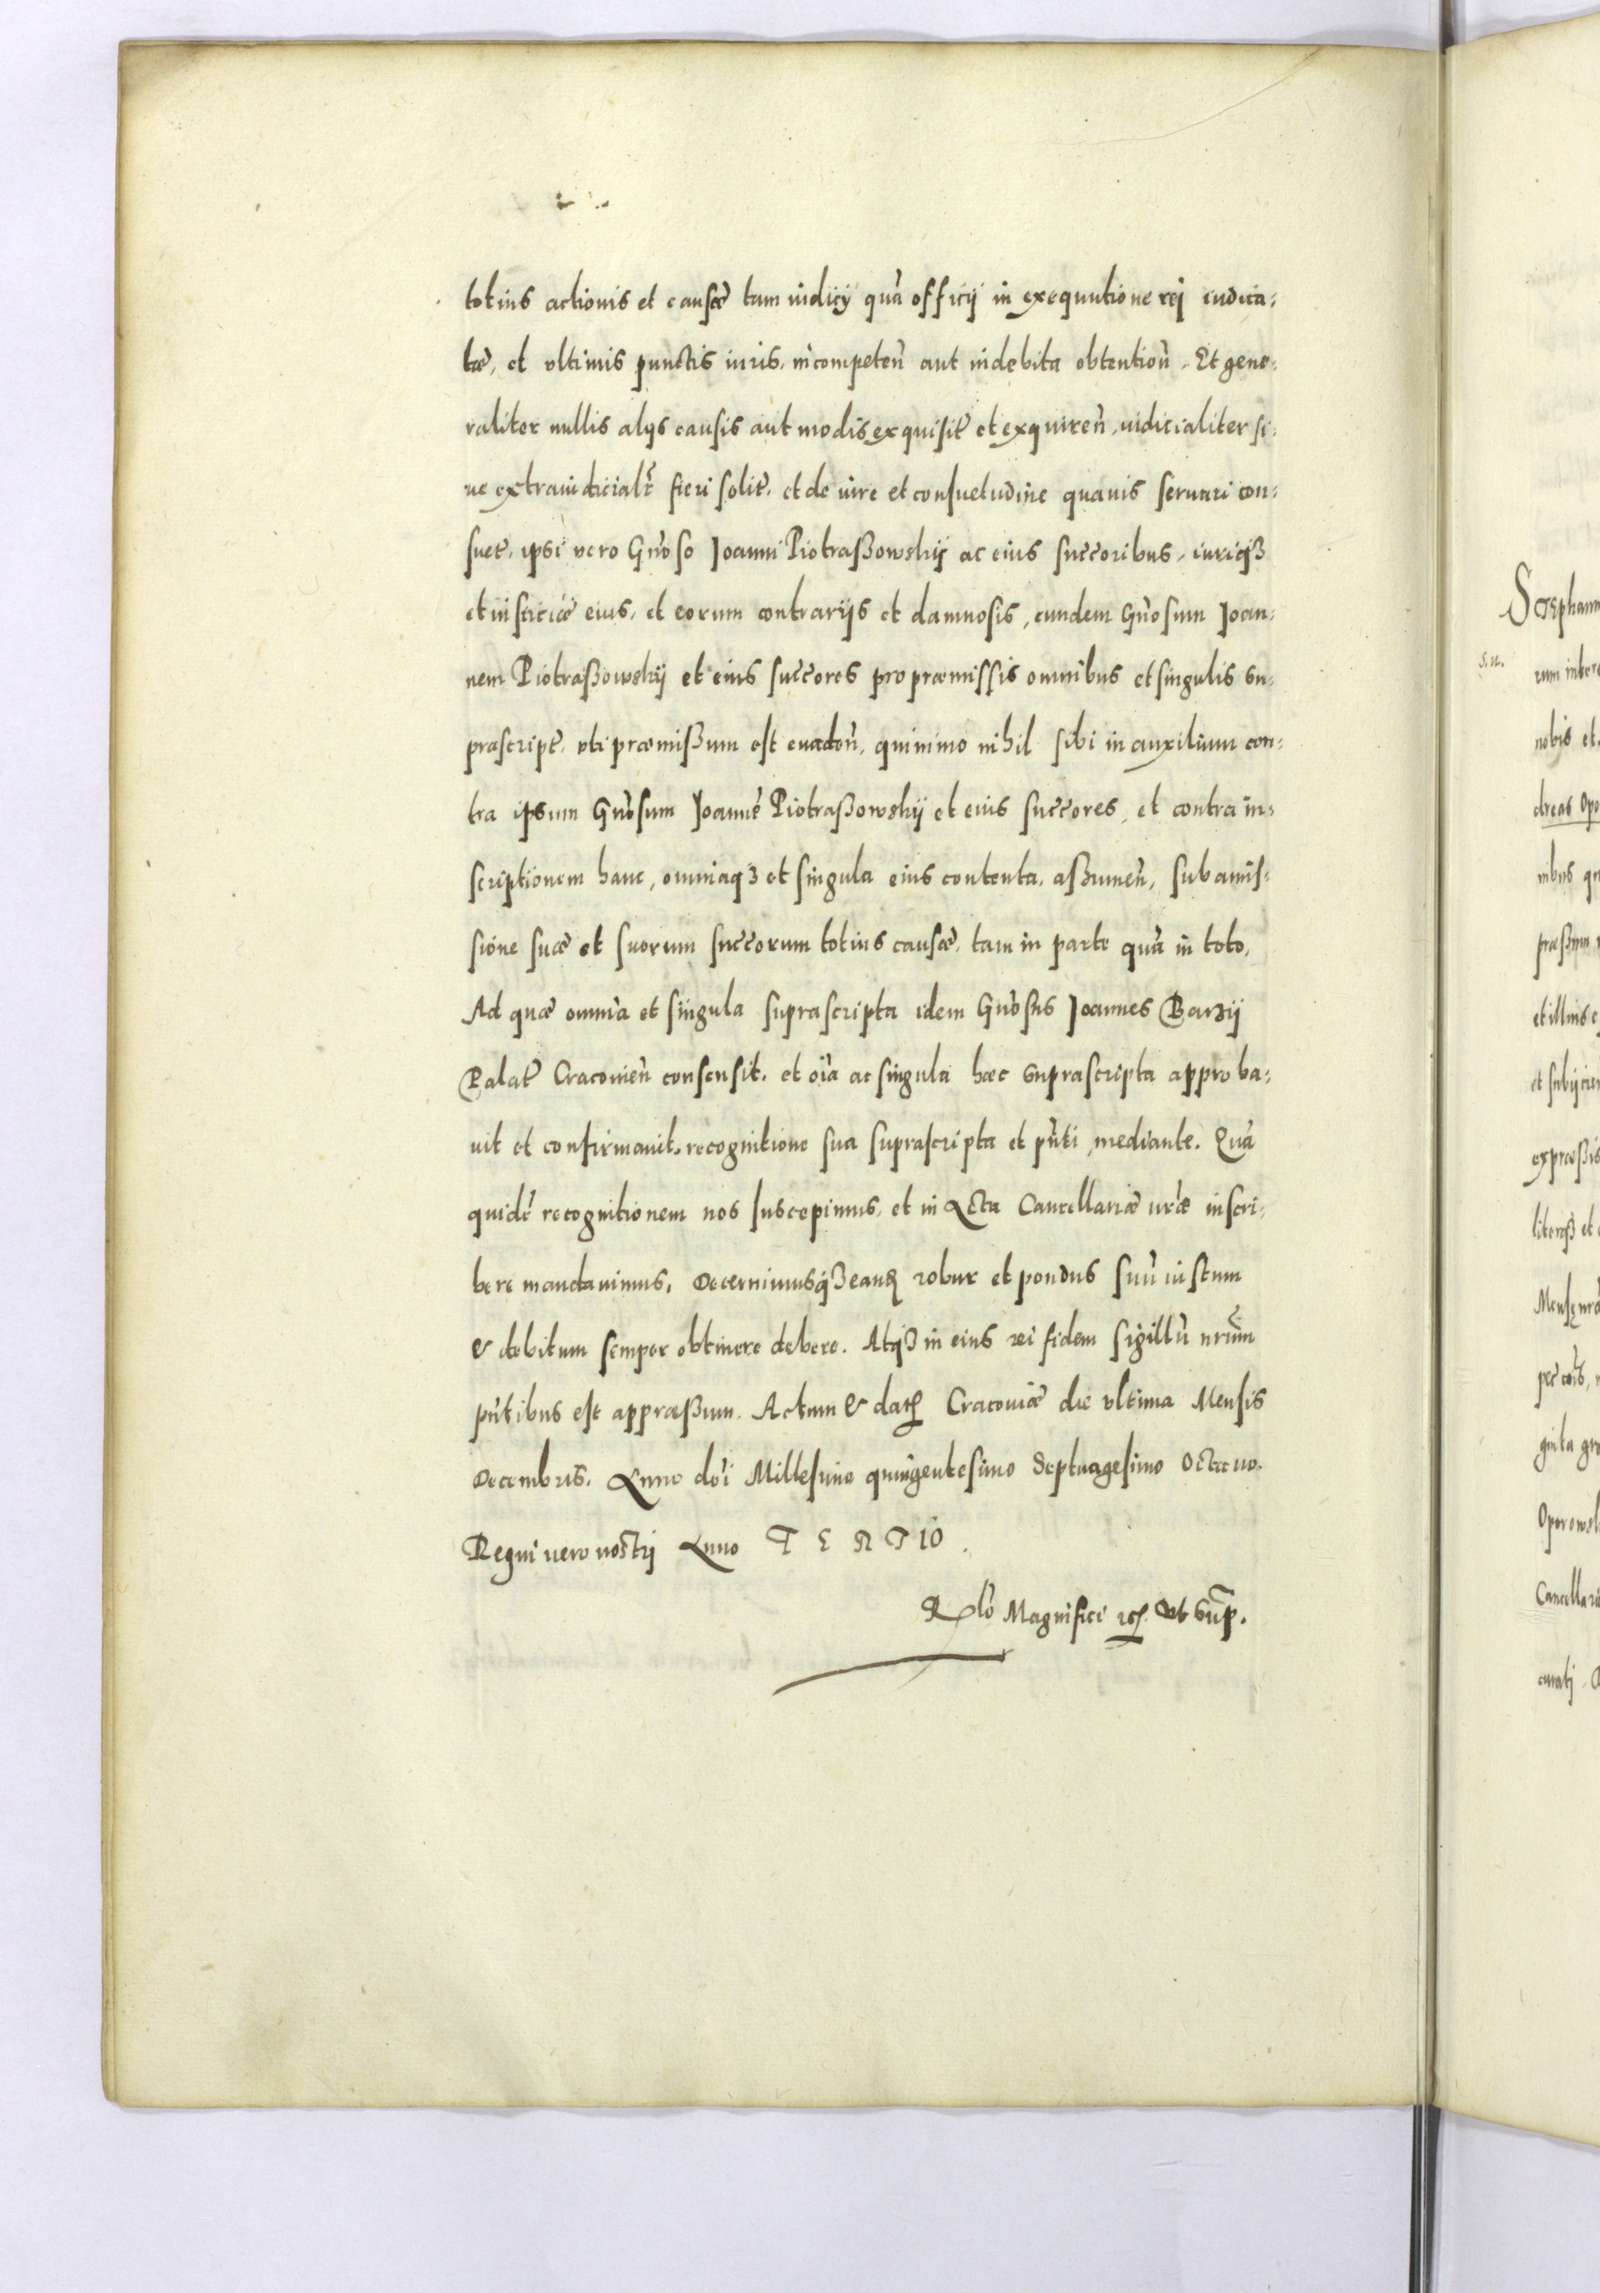 totius actionis et causæ tam iudicij quā officij in exequutione rej iudica-
tæ, et vltimis punctis iuris, incompeteñ aut indebita obtentioñ. Et gene-
raliter nullis alijs causis aut modis exquisit̃ et exquireñ, iudicialiter si-
ue extraiudicialr̃ fieri solit̃, et de iure et consuetudine quauis seruari con-
suet̃, ipsi vero Gñoso Joanni Piotraßowskij ac eius succ̃oribus, iuriqȝ
et iusticiæ eius, et eorum contrarijs et damnosis, eundem Gñosum Joan-
nem Piotraßowskij et eius succ̃ores pro præmissis omnibus et singulis su-
prascript̃, vti præmißum est euadeñ, quinimo nihil sibi in auxilium con-
tra ipsum Gñosum Joannē Piotraßowskij et eius succ̃ores, et contra in-
scriptionem hanc, omniaqȝ et singula eius contenta, aßumeñ, sub amis-
sione suæ et suorum succ̃orum totius causæ, tam in parte quā in toto,
Ad quæ omnia et singula suprascripta idem Gñosus Joannes Barzij
Palat̃ Cracovieñ consensit, et oĩa ac singula hæc suprascripta approba-
uit et confirmauit, recognitione sua suprascripta et pñti mediante. Quā
quidē recognitionem nos suscepimus, et in Acta Cancellariæ nr̃æ inscri-
bere mandauimus, Decernimusqȝ eanđ robur et pondus suū iustum
& debitum semper obtinere debere. Atqȝ in eius rei fidem sigillū nrũm
pñtibus est appræßum. Actum & datʒ Cracoviæ die vltima Mensis
Decembris. Anno dñi Millesimo quingentesimo Septuagesimo Octauo.
Regni vero nostrj Anno TERTIO.
Rló Magnifici etc̃ vt sup̃.
Stephann
rum inter
nobis et
dreas Opo
nibus qu
præßum
et illius e
et subijcie
expræßis
literasȝ et
Mensę
ginta gr
Oporowsk
Cancellariæ